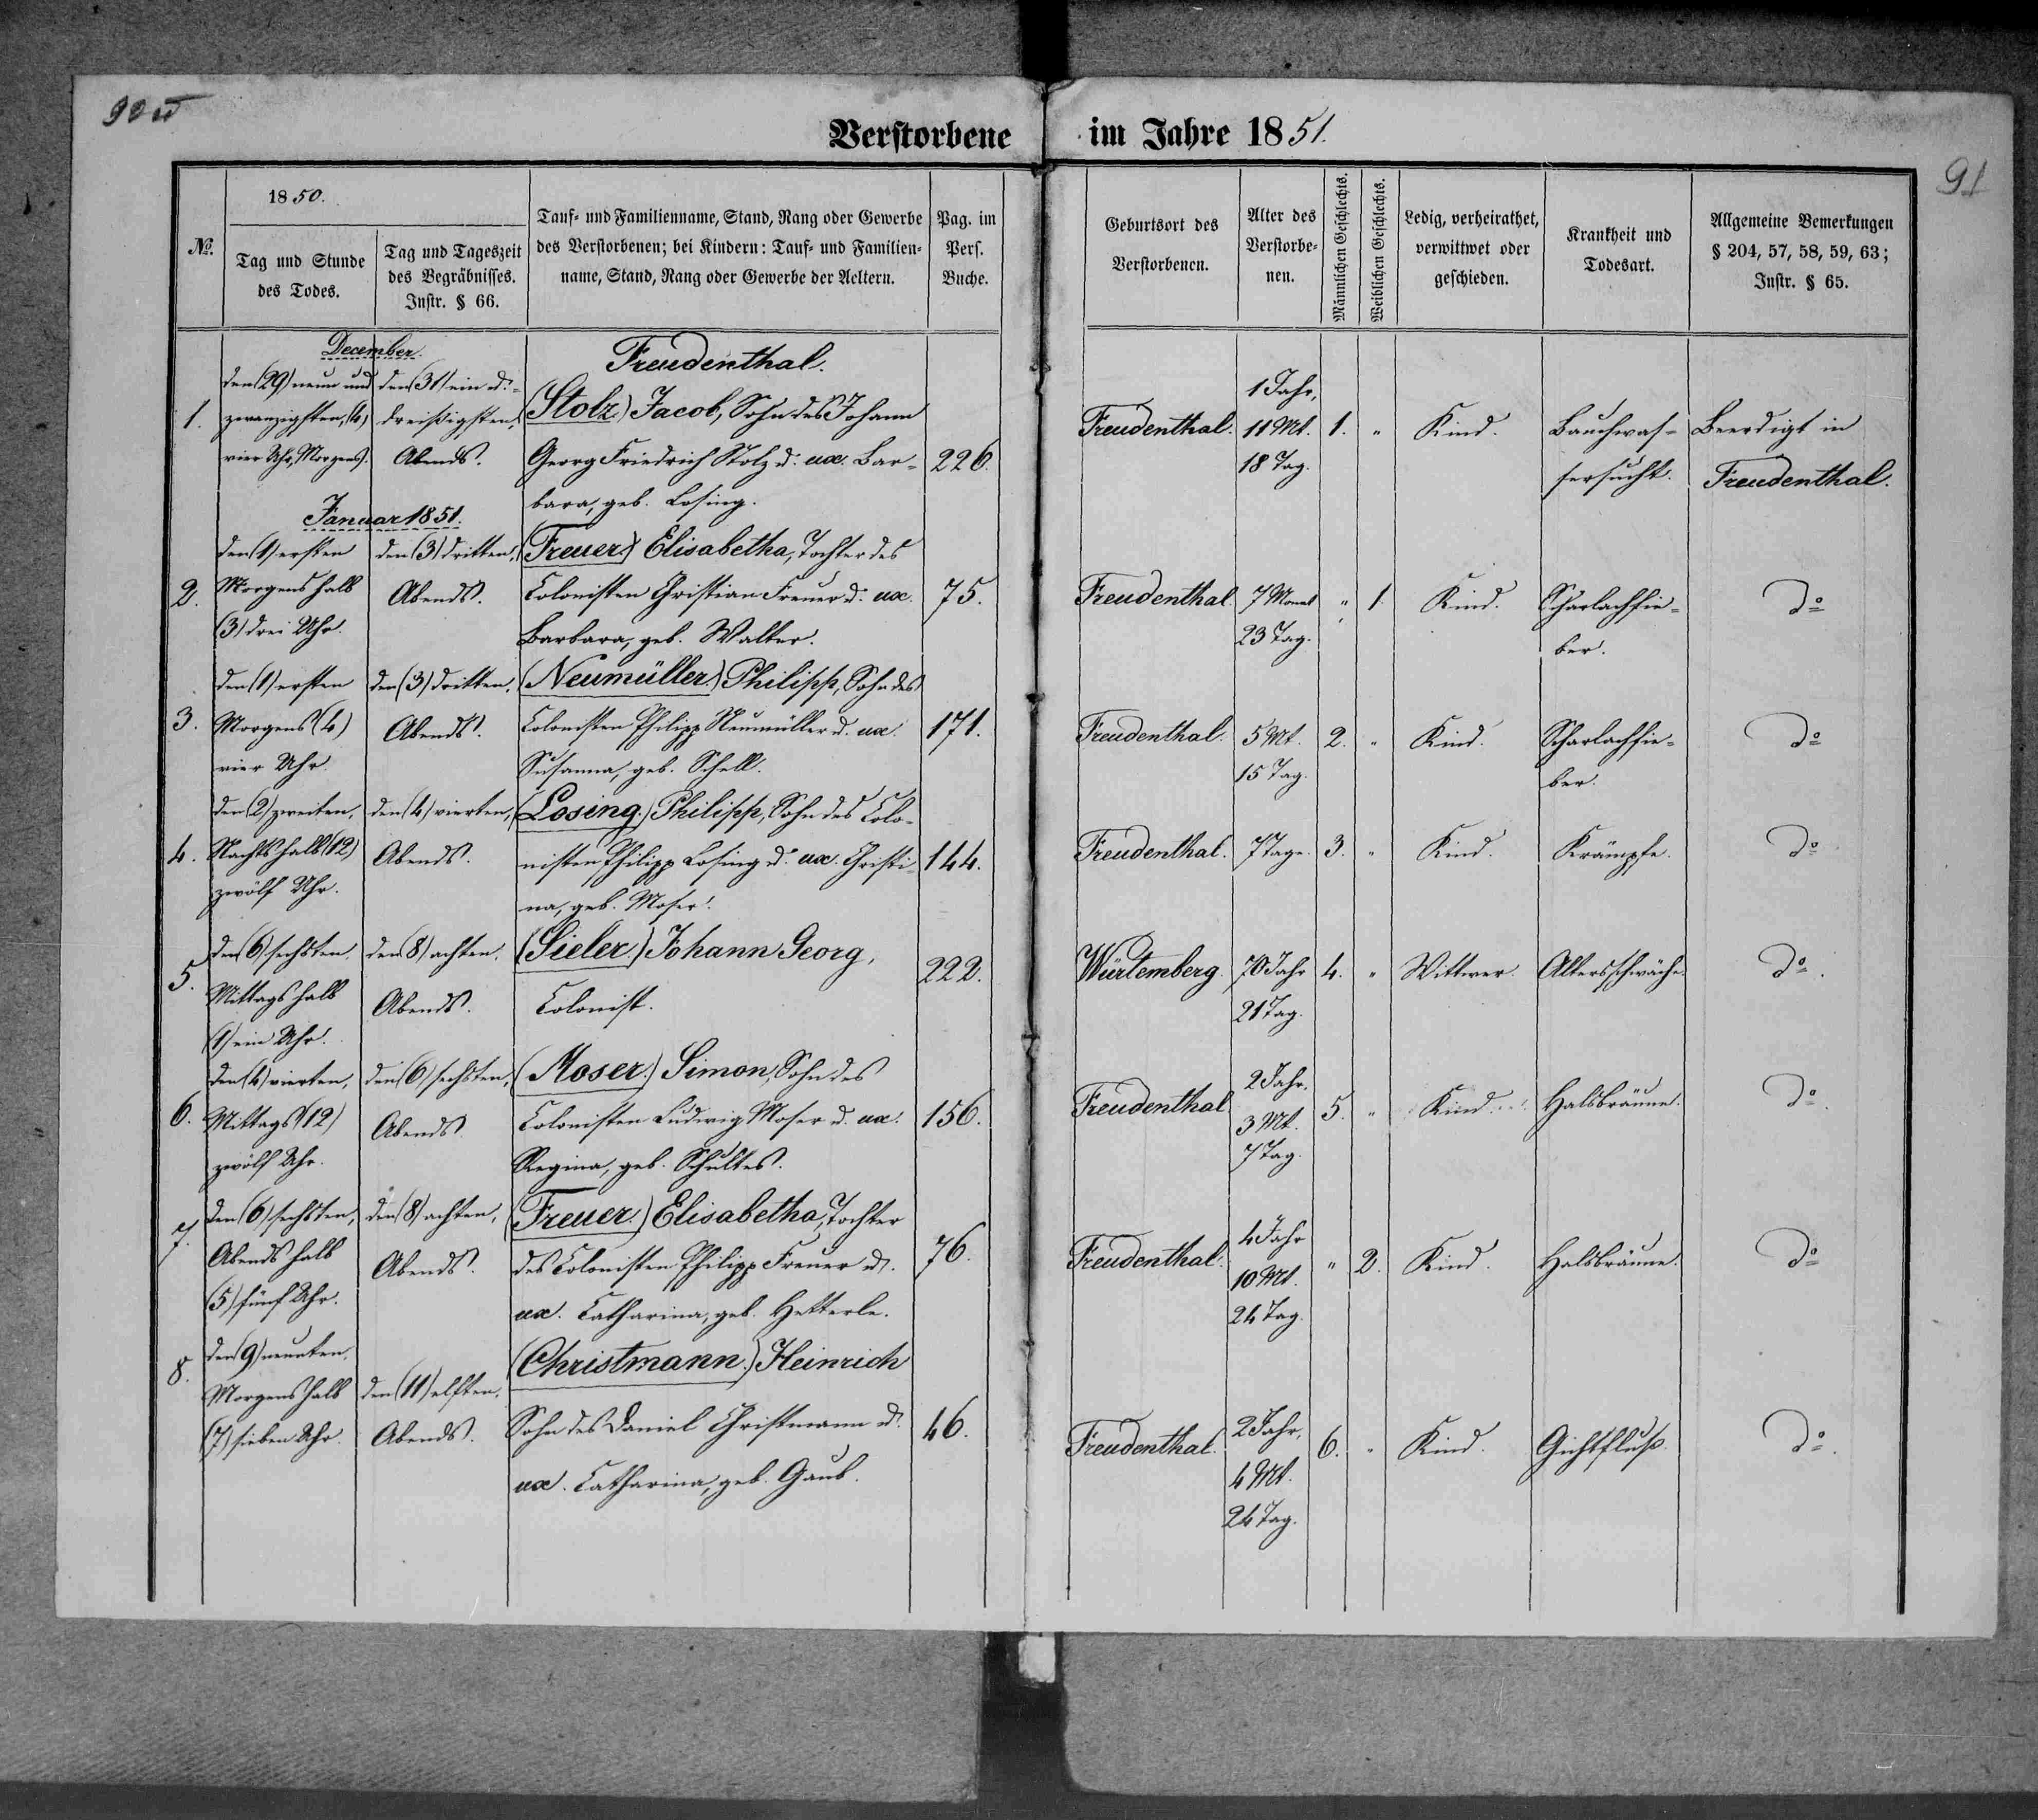 90 u
Verstorbene im Jahre 1851.
91
No.
1850.
Tag und Stunde
des Todes.
Tag und Tageszeit
des Begräbnisses.
Instr. § 66.
Tauf- und Familienname, Stand, Rang oder Gewerbe
des Verstorbenen; bei Kindern: Tauf- und Familien-
name, Stand, Rang oder Gewerbe der Aeltern.
Pag. im
Pers.
Buche.
Geburtsort des
Verstorbenen.
Alter des
Verstorbe-
nen.
Männlichen Geschlechts.
Weiblichen Geschlechts.
Ledig, verheirathet,
verwittwet oder
geschieden.
Krankheit und
Todesart.
Allgemeine Bemerkungen
§ 204, 57, 58, 59, 63;
Instr. § 65.
December.
Freudenthal.
1.
den (29) neun und
zwanzigsten, (4)
vier Uhr, Morgens.
den (31) ein u.-
dreißigsten,
Abends.
(Stolz) Jacob, Sohn des Johann
Georg Friedrich Stolz u. ux. Bar-
bara, geb. Losing.
226.
Freudenthal.
1 Jahr,
11 Mt.
18 Tag.
1.
"
Kind.
Bauchwas-
sersucht.
Beerdigt in
Freudenthal.
Januar 1851.
2.
den (1) ersten
Morgens halb
(3) drei Uhr.
den (3) dritten,
Abends.
(Freuer) Elisabetha, Tochter des
Colonisten Christian Freuer u. ux.
Barbara, geb. Walter.
75.
Freudenthal.
7 Monat
23 Tag.
"
1.
Kind.
Scharlachfie-
ber.
do
3.
den (1) ersten
Morgens (4)
vier Uhr.
den (3) dritten,
Abends.
(Neumüller.) Philipp, Sohn des
Colonisten Philipp Neumüller u. ux.
Susanna, geb. Schell.
171.
Freudenthal.
5 Mt.
15 Tag.
2.
"
Kind.
Scharlachfie-
ber.
do
4.
den (2) zweiten,
Nachts halb (12)
zwölf Uhr.
den (4) vierten,
Abends.
(Losing.) Philipp, Sohn des Colo-
nisten Philipp Losing u. ux. Christi-
na, geb. Moser.
144.
Freudenthal.
7 Tage.
3.
"
Kind.
Krämpfe.
do
5.
den (6) sechsten,
Mittags halb
(1) ein Uhr.
den (8) achten,
Abends.
(Sieler.) Johann Georg,
Colonist.
222.
Würtemberg.
70 Jahr
21 Tag.
4.
"
Wittwer.
Altersschwäche.
do.
6.
den (4) vierten,
Mittags (12)
zwölf Uhr.
den (6) sechsten,
Abends.
(Moser.) Simon, Sohn des
Colonisten Ludwig Moser u. ux.
Regina, geb. Schultes.
156.
Freudenthal
2 Jahr,
3 Mt.
7 Tag.
5.
"
Kind.
Halsbräune.
do.
7.
den (6) sechsten,
Abends halb
(5) fünf Uhr.
den (8) achten,
Abends.
(Freuer.) Elisabetha, Tochter
des Colonisten Philipp Freuer u.
ux. Catharina, geb. Hetterle.
76.
Freudenthal.
4 Jahr
10 Mt.
24 Tag.
"
2.
Kind.
Halsbräune.
do
8.
den (9) neunten,
Morgens halb
(7) sieben Uhr.
den (11) elften,
Abends.
(Christmann.) Heinrich
Sohn des Daniel Christmann u.
ux. Catharina, geb. Gaub.
46.
Freudenthal.
2 Jahr,
4 Mt.
24 Tag.
6.
"
Kind.
Gichtfluß.
do.